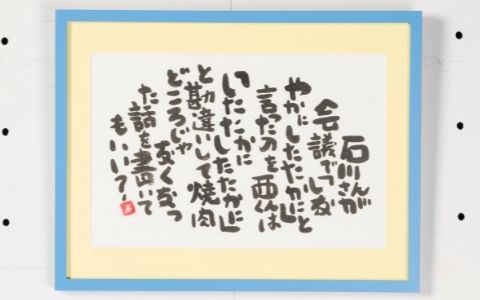 石川さんが
会議で「しな
やかにしたたかに」と
言ったのを西くんは
したたかに」
と勘違いして焼肉
どころじゃなくなっ
た話を書いて
もいい？